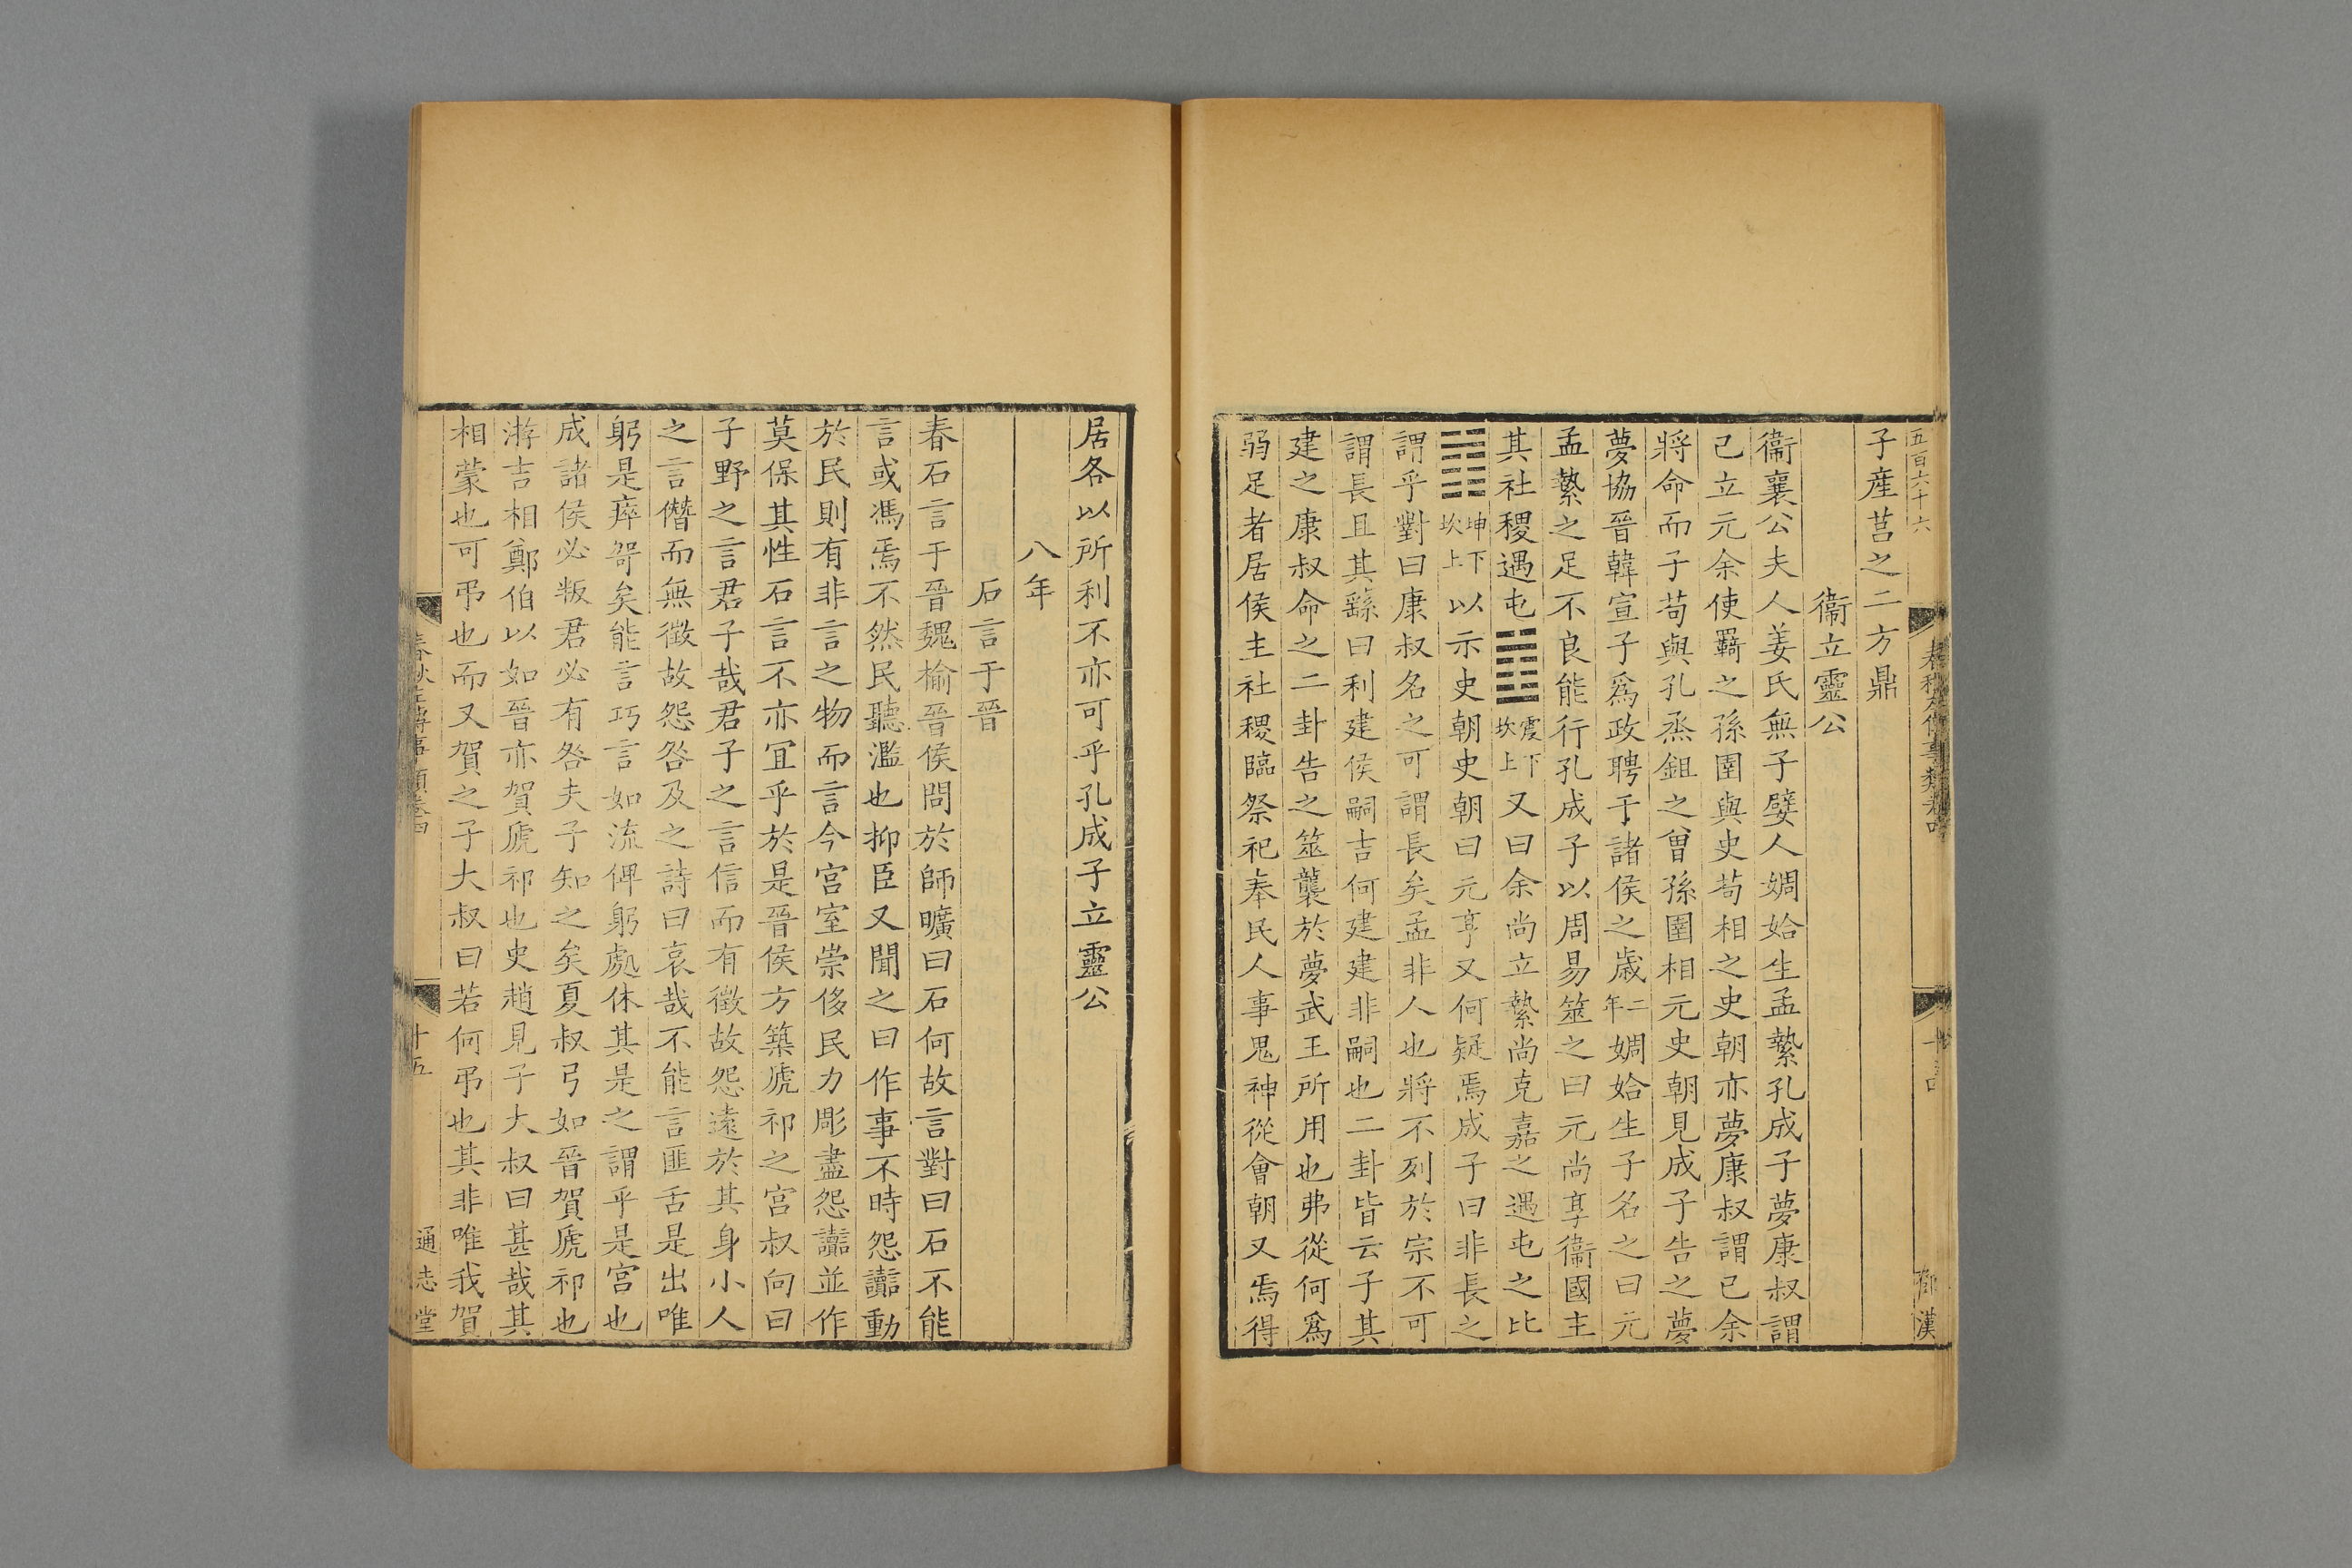 五百六十六
子産莒之二方鼎
衞立靈公
衞襄公夫人姜氏無子嬖人婤姶生孟縶孔成子夢康叔謂
己立元余使羇之孫圉與史苟相之史朝亦夢康叔謂己余
將命而子苟與孔烝鉏之曾孫圉相元史朝見成子告之夢
夢協晉韓宣子爲政聘于諸侯之歲二年婤姶生子名之曰元
孟縶之足不良能行孔成子以周易筮之曰元尚享衞國主
其社稷遇屯䷂震下坎上又曰余尚立縶尚克嘉之遇屯之比
䷇坤下坎上以示史朝史朝曰元亨又何疑焉成子曰非長之
謂乎對曰康叔名之可謂長矣孟非人也將不列於宗不可
謂長且其繇曰利建侯嗣吉何建建非嗣也二卦皆云子其
建之康叔命之二卦告之筮襲於夢武王所用也弗從何爲
弱足者居侯主社稷臨祭祀奉民人事鬼神從會朝又焉得
居各以所利不亦可乎孔成子立靈公
八年
石言于晉
春石言于晉魏榆晉侯問於師曠曰石何故言對曰石不能
言或馮焉不然民聽濫也抑臣又聞之曰作事不時怨讟動
於民則有非言之物而言今宮室崇侈民力彫盡怨讟並作
莫保其性石言不亦宜乎於是晉侯方築虒祁之宮叔向曰
子野之言君子哉君子之言信而有徵故怨遠於其身小人
之言僭而無徵故怨咎及之詩曰哀哉不能言匪舌是出唯
躬是瘁哿矣能言巧言如流俾躬處休其是之謂乎是宮也
成諸侯必叛君必有咎夫子知之矣夏叔弓如晉賀虒祁也
游吉相鄭伯以如晉亦賀虒祁也史趙見子大叔曰甚哉其
相蒙也可弔也而又賀之子大叔曰若何弔也其非唯我賀
春秋左傳事類卷四
十五
通志堂